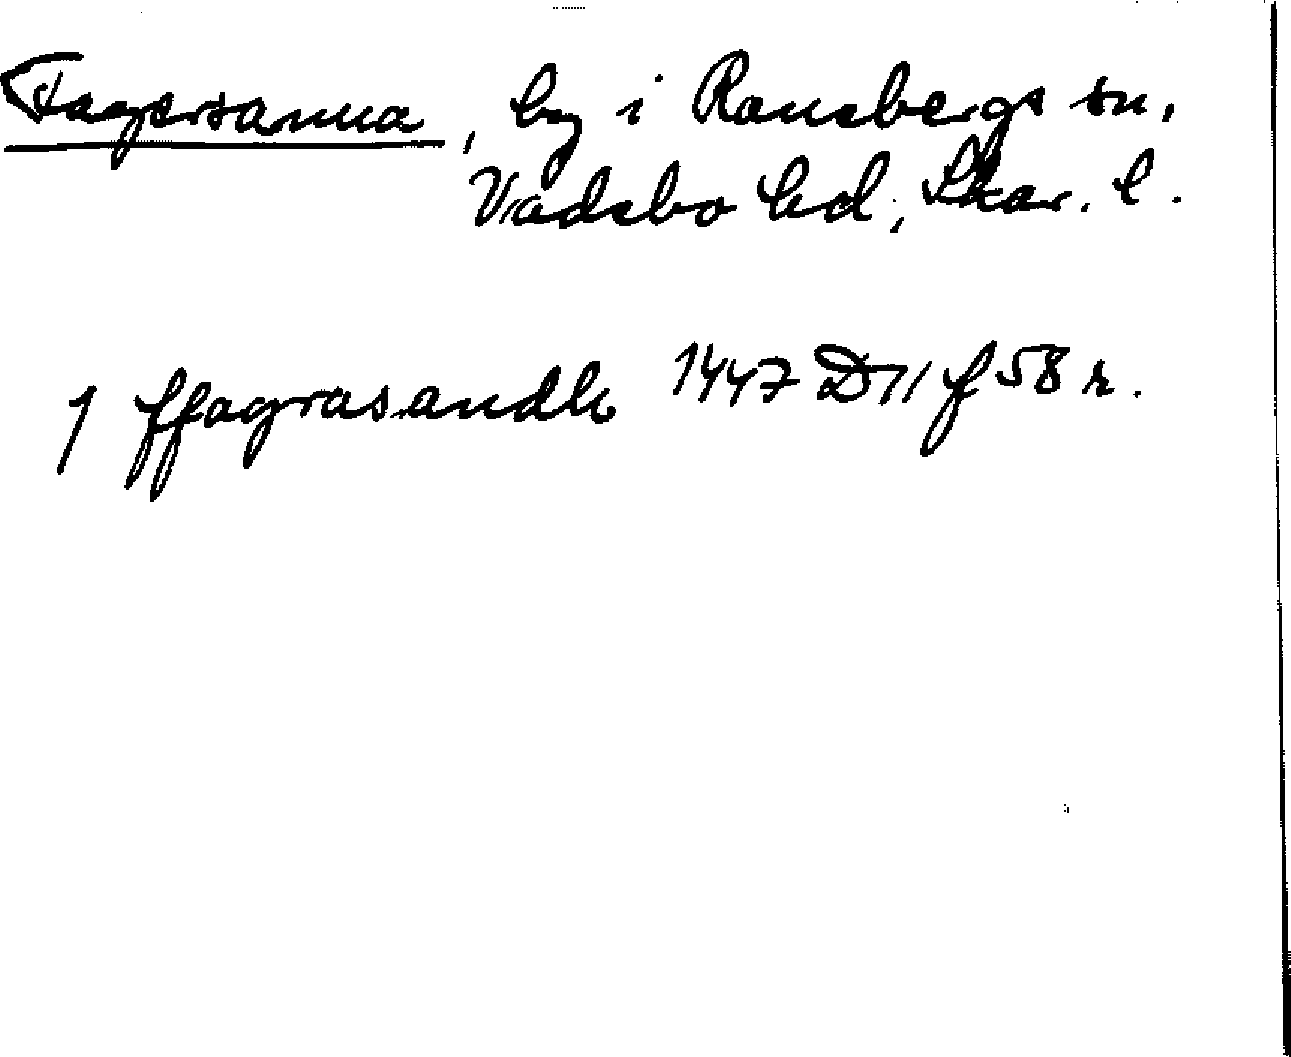 Fagersanna, by i Ransbergs sn,
Vadsbo hd, Skar. l.
J ffagrasandh 1447 D 11 f 58 r.